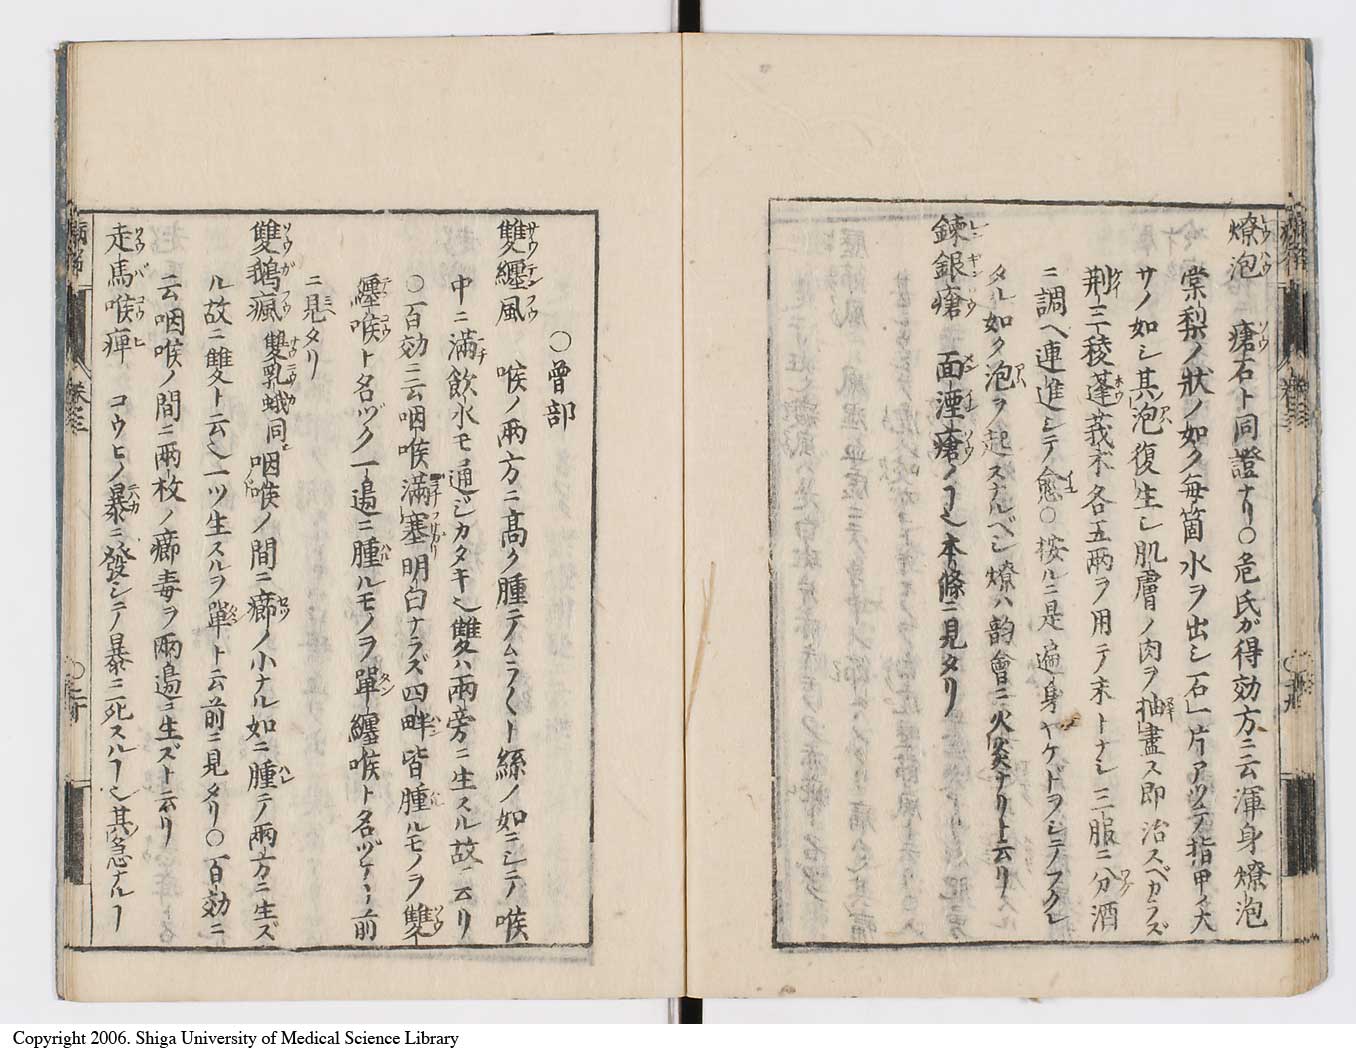 燎泡 瘡石ト同證ナリ〇危氏ガ得効方ニ云渾身燎泡
棠梨ノ狀ノ如ク毎箇水ヲ出シ石一片アツテ指甲ノ大
サノ如シ其泡復生シ肌膚ノ肉ヲ抽盡ス即治スベカラズ
荆三稜蓬莪朮各五兩ヲ用テ末トナシ三服ニ分酒
ニ調ヘ連進シテ愈〇按ルニ是遍身ヤケドヲシテフクレ
タル如ク泡ヲ起スナルベシ燎ハ韵會ニ火炎ナリト云リ
鍊銀瘡 面湮瘡ノ𬼀也本條ニ見タリ
〇曾部
雙纏風 喉ノ兩方ニ高ク腫テムラ〱ト絲ノ如ニシテ喉
中ニ滿飲水モ通ジカタキ也雙ハ兩旁ニ生スル故ニ云リ
〇百効ニ云咽喉滿塞明白ナラズ四畔皆腫ルモノヲ雙
纏喉ト名ヅク一邊ニ腫ルモノヲ單纏喉ト名ヅクト前
ニ見タリ
雙鵝瘋 雙乳蛾同 咽喉ノ間ニ癤ノ小ナル如ニ腫テ兩方ニ生ズ
ル故ニ雙ト云也一ツ生スルヲ單ト云前ニ見タリ〇百効ニ
云咽喉ノ間ニ兩枚ノ癤毒ヲ兩邊ニ生ズト云リ
走馬喉痺 コウヒノ暴ニ發シテ暴ニ死スル𬼀也其急ナル𬼀
Copyright 2006. Shiga University of Medical Science Library